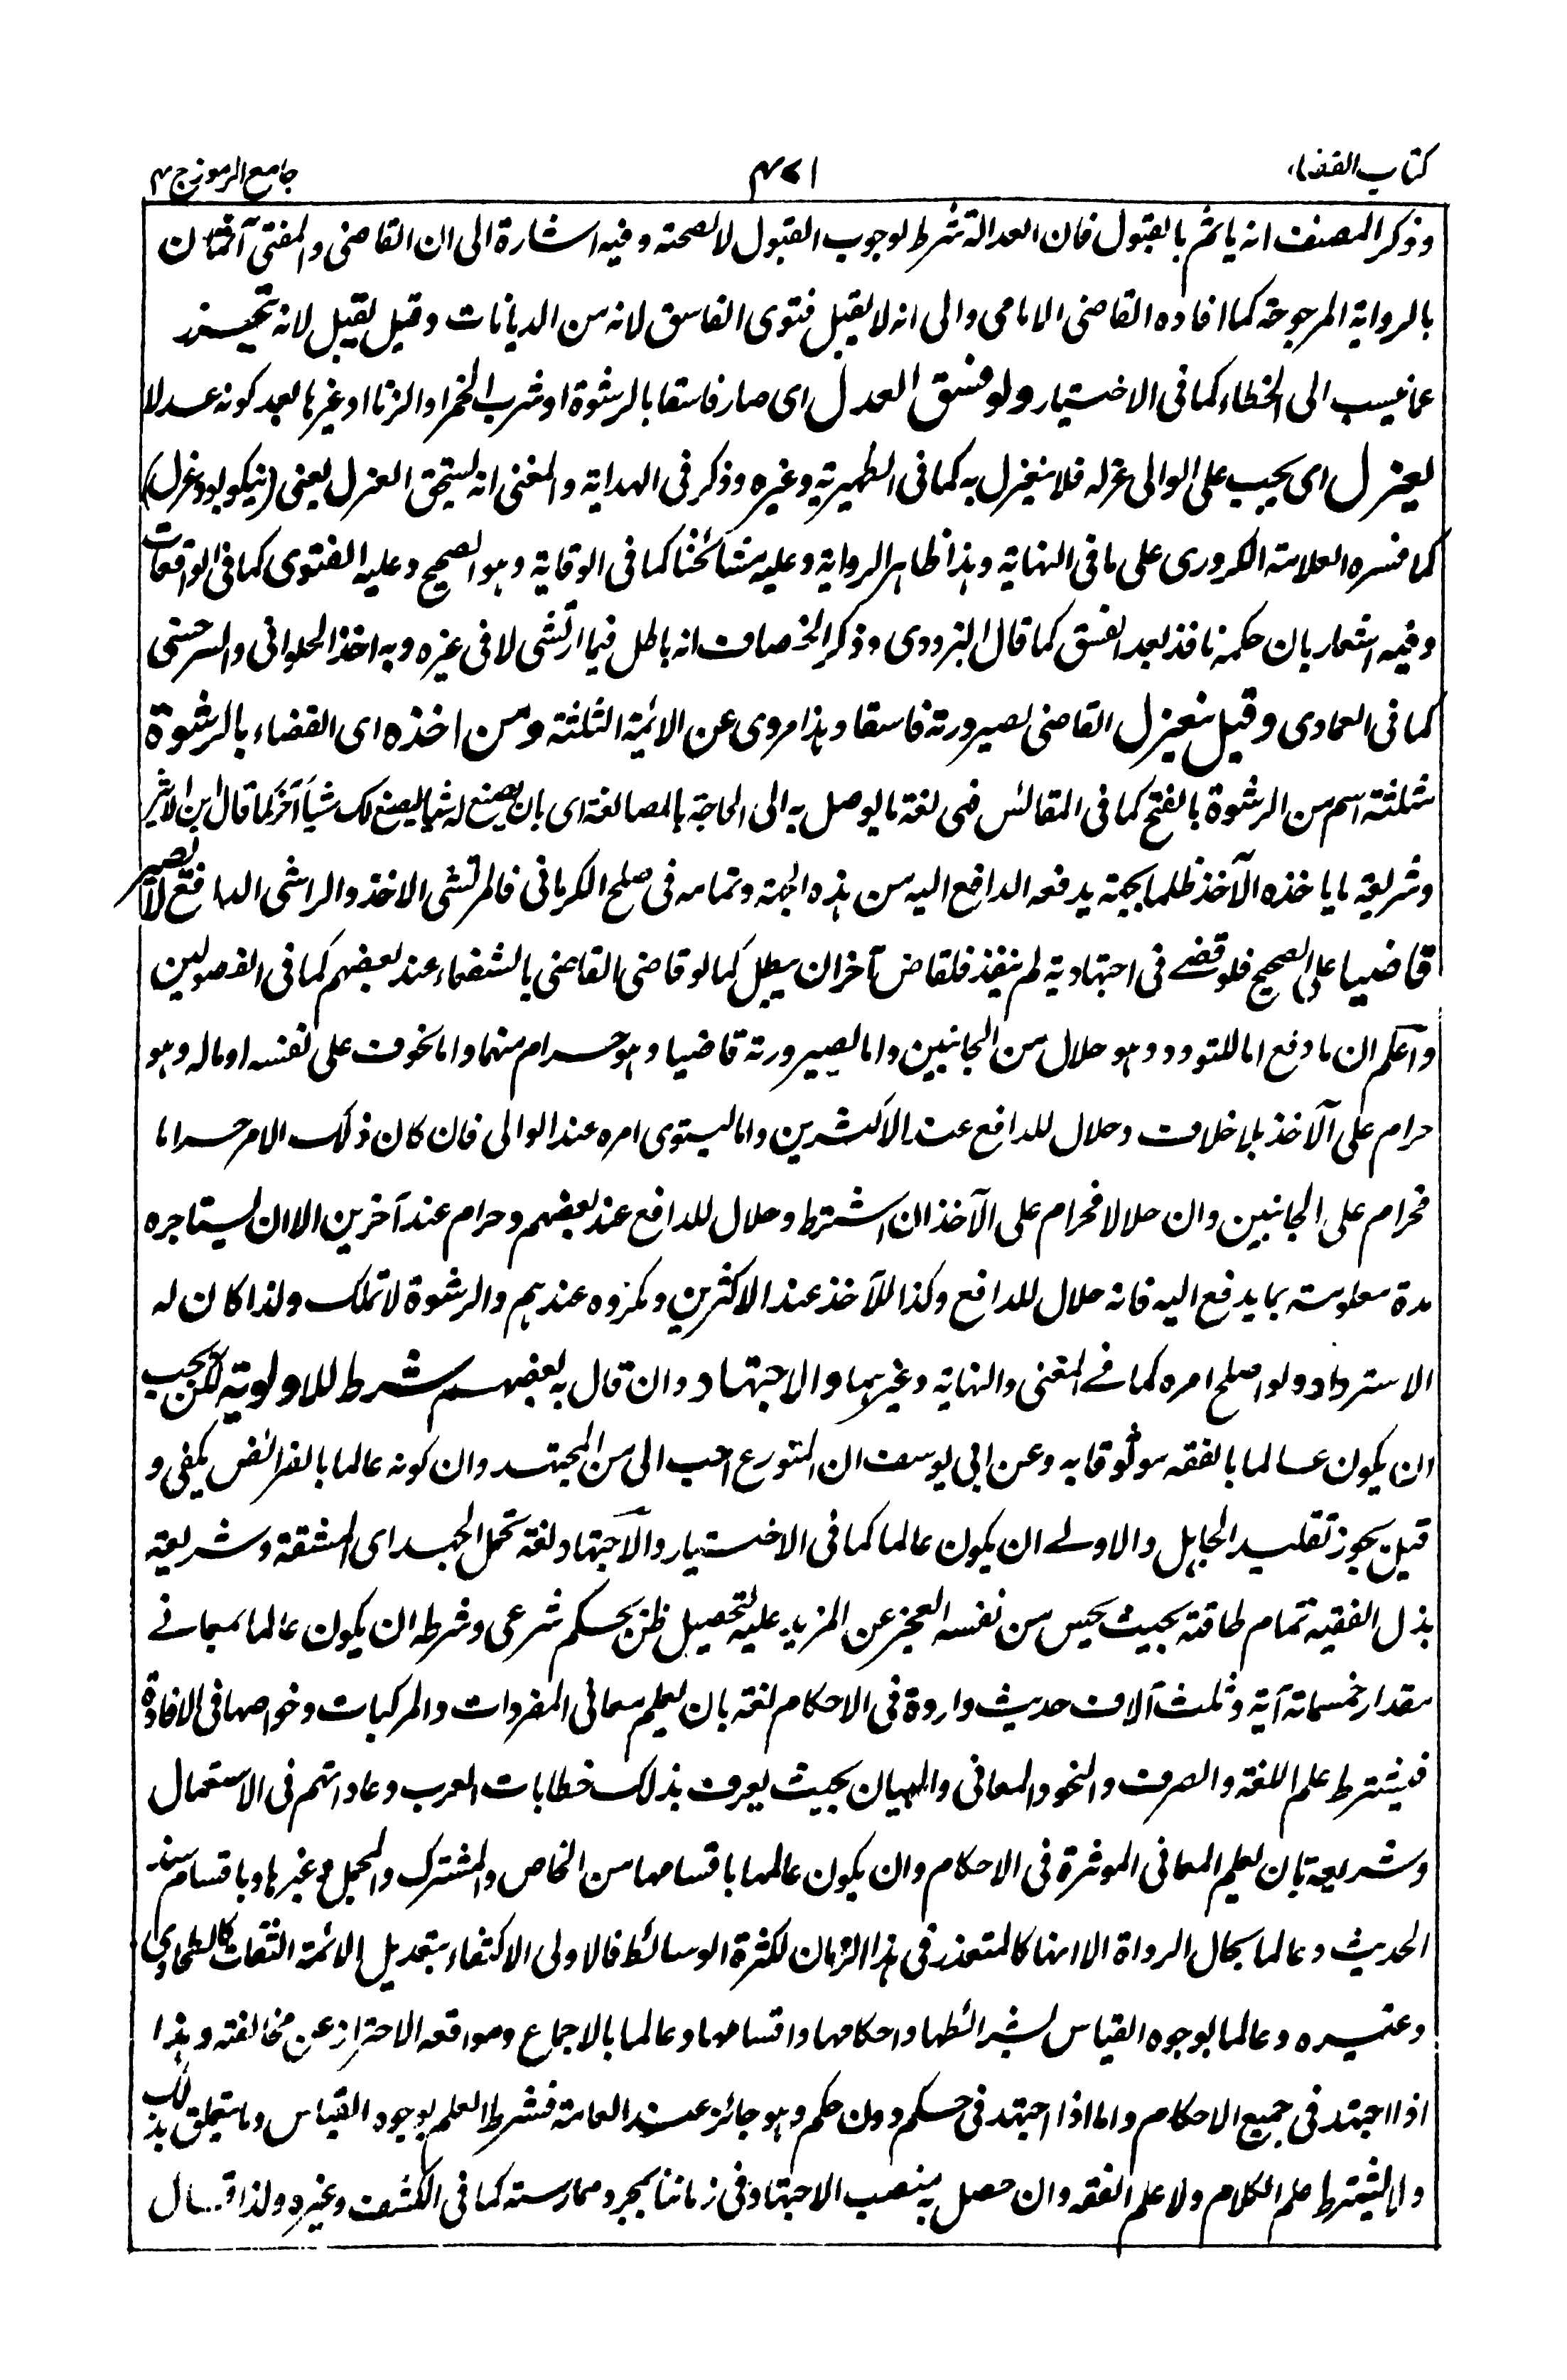 كتاب القضاء ٤٧١ جامع الرموز ج ٣
وذكر المصنف انه ياثم بالقبول فان العدالة شرط لوجوب القبول لا لصحته وفيه اشارة الى ان القاضى والمفتى آثمان
بالرواية المرجوحة كما افاده القاضى الامامى والى انه لا يقبل فتوى الفاسق لانه من الديانات وقيل يقبل لانه يتحرز
عما ينسب الى الخطاء كما فى الاختيار ولو فسق العدل اى صار فاسقا بالرشوة او شرب الخمر او الزنا او غيرها بعد كونه عدلا
يعزل اى يجب على الوالى عزله فلا ينعزل به كما فى الظهيرية وغيره وذكر فى الهداية والمغنى انه يستحق العزل يعنى (نيكو بود عزل)
كما فسره العلامة الكرورى على ما فى النهاية وهذا ظاهر الرواية وعليه مشائخنا كما فى الوقاية وهو الصحيح وعليه الفتوى كما فى الواقعات
وفيه اشعار بان حكمه نافذ بعد الفسق كما قال البزدوى وذكر الخصاف انه باطل فيما ارتشى لا فى غيره وبه اخذ الحلوانى والسرخسى
كما فى العمادى وقيل ينعزل القاضى لصيرورته فاسقا وهذا مروى عن الائمة الثلثة ومن اخذه اى القضاء بالرشوة
مثلثة اسم من الرشوة بالفتح كما فى المقائس فهى لغة ما يوصل به الى الحاجة بالمصانعة اى بان يصنع له شيا ليصنع لك شيأ آخر كما قال ابن الاثير
وشريعة ما ياخذه الآخذ ظلما بجهة يدفعه الدافع اليه من هذه الجهة وتمامه فى صلح الكرمانى فالمرتشى الاخذ والراشى الدافع لا يصير
قاضيا على الصحيح فلو قضے فى اجتهادية لم ينفذ فلقاض آخر ان يبطل كما لو قاضى القاضى بالشفعاء عند بعضهم كما فى الفصولين
وآعلم ان ما دفع اما للتودد وهو حلال من الجانبين واما لصيرورته قاضيا وهو حرام منهما واما لخوف على نفسه او ماله وهو
حرام على الآخذ بلا خلاف وحلال للدافع عند الاكثرين واما ليستوى امره عند الوالى فان كان ذلك الامر حراما
فحرام على الجانبين وان حلالا فحرام على الآخذ ان اشترط وحلال للدافع عند بعضهم وحرام عند آخرين الا ان يستاجره
مدة معلومة بما يدفع اليه فانه حلال للدافع وكذا للآخذ عند الاكثرين ومكروه عندهم والرشوة لا تملك ولذا كان له
الاسترداد ولو اصلح امره كما فے المغنى والنهاية وغيرهما والاجتهاد وان قال به بعضهم شرط للاولوية لكن يجب
ان يكون عالما بالفقه موثوقا به وعن ابى يوسف ان المتورع احب الى من المجتهد وان كونه عالما بالفرائض يكفى و
قيل يجوز تقليد الجاهل والاولے ان يكون عالما كما فى الاختيار والآجتهاد لغة تحمل الجهد اى المشقة وشريعة
بذل الفقيه تمام طاقته بحيث يحس من نفسه العجز عن المزيد عليه لتحصيل ظن بحكم شرعى وشرطه ان يكون عالما بمعانے
مقدار خمسمائة آية وثلث آلاف حديث واردة فى الاحكام لغة بان يعلم معانى المفردات والمركبات وخواصها فى الافادة
فيشترط علم اللغة والصرف والنحو والمعانى والبيان بحيث يعرف بذلك خطابات العرب وعاداتهم فى الاستعمال
وشريعة بان يعلم المعانى الموثرة فى الاحكام وان يكون عالما باقسامها من الخاص والمشترك والمجمل وغيرها وباقسام سند
الحديث وعالما بحال الرواة الا انها كالمتعذر فى هذا الزمان لكثرة الوسائط فالاولى الاكتفاء بتعديل الائمة الثقات كالطحاوى
وغيره وعالما بوجوه القياس بشرائطها واحكامها واقسامها وعالما بالاجماع ومواقعه الاحتراز عن مخالفته وهذا
اذا اجتهد فى جميع الاحكام واما اذا اجتهد فى حكم دون حكم وهو جائز عند العامة فشرط العلم بوجوه القياس وما يتعلق بذلك
ولا يشترط علم الكلام ولا علم الفقه وان حصل منصب الاجتهاد فى زماننا بمجرد ممارسته كما فى الكشف وغيره ولذا قال